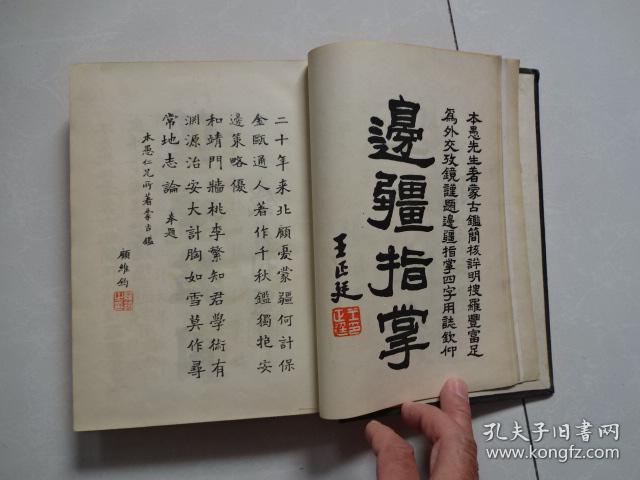 本愚先生著蒙古鑑簡核詳明搜羅豐富足
爲外交攷鏡謹題邊疆指掌四字用誌欽仰
邊疆指掌
王正廷
二十年来北顧憂蒙疆何計保
金甌通人著作千秋鑑獨抱安
邊策略優
和靖門牆桃李繁知君學術有
淵源治安大計胸如雪莫作尋
常地志論 奉題
本愚仁兄所著蒙古鑑
顧維鈞
孔夫子旧书网
www.kongfz.com